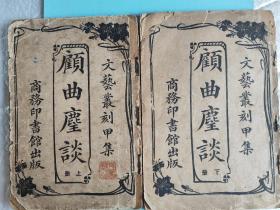 文藝叢刻甲集
顧曲麈談
上册
商務印書館出版
文藝叢刻甲集
顧曲麈談
下册
商務印書館出版